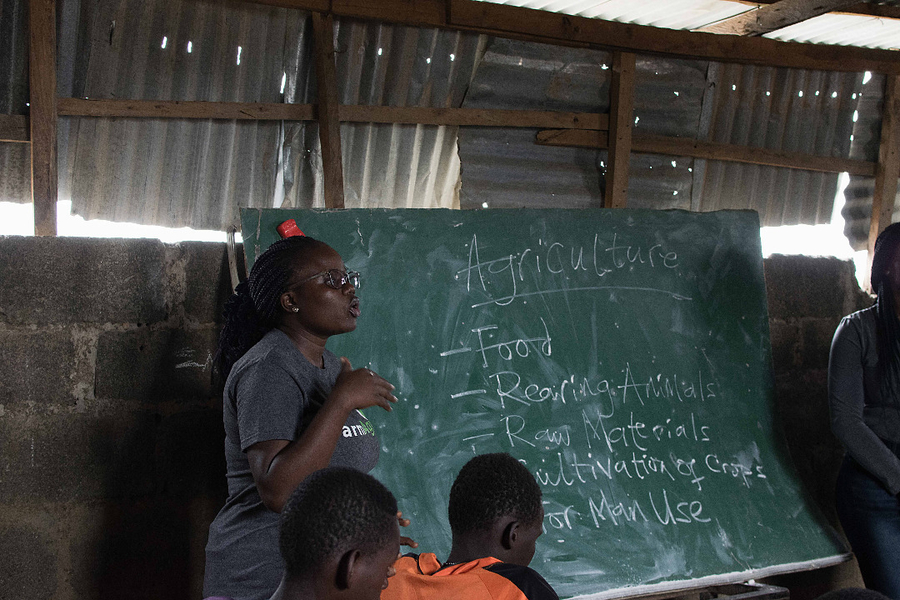 Agriculture
- Food
- Rearing Animals
- Raw Materials
Cultivation of Crops
For Man Use